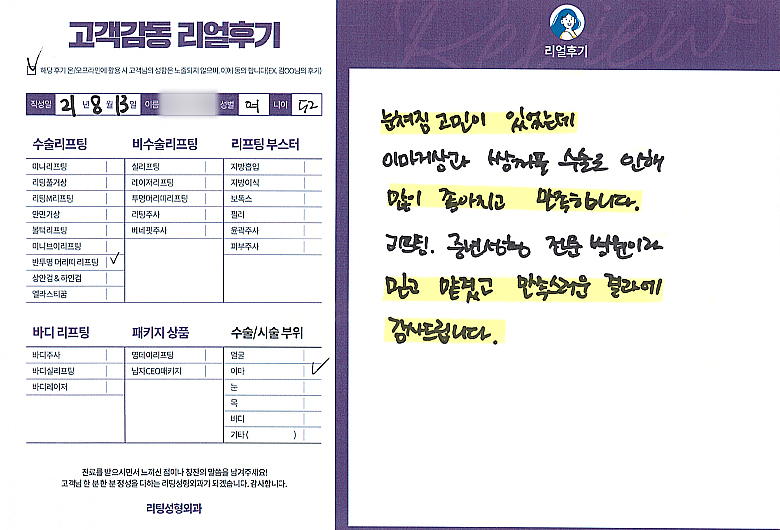 고객감동 리얼후기
해당 후기 온/오프라인에 활용 시 고객님의 성함은 노출되지 않으며, 이에 동의 합니다(EX. 김OO님의 후기)
작성일 21년 8월 13일 이름 성별 여 나이 52
수술리프팅
미니리프팅
리팅풀거상
리팅M리프팅
안면거상
볼턱리프팅
미니브이리프팅
반투명 머리띠 리프팅
상안검 & 하안검
엘라스티꿈
비수술리프팅
실리프팅
레이저리프팅
투명머리띠리프팅
리팅주사
베네핏주사
리프팅 부스터
지방흡입
지방이식
보톡스
필러
윤곽주사
피부주사
바디 리프팅
바디주사
바디실리프팅
바디레이저
패키지 상품
원데이리프팅
남자CEO패키지
수술/시술 부위
얼굴
이마
눈
목
바디
기타( )
진료를 받으시면서 느끼신 점이나 칭찬의 말씀을 남겨주세요!
고객님 한 분 한 분 정성을 다하는 리팅성형외과가 되겠습니다. 감사합니다.
리팅성형외과
Review
리얼후기
눈쳐짐 고민이 있었는데
이마거상과 쌍커풀 수술로 인해
많이 좋아지고 만족합니다.
리프팅! 중년성형 전문 병원이라
믿고 맡겼고 만족스러운 결과에
감사드립니다.